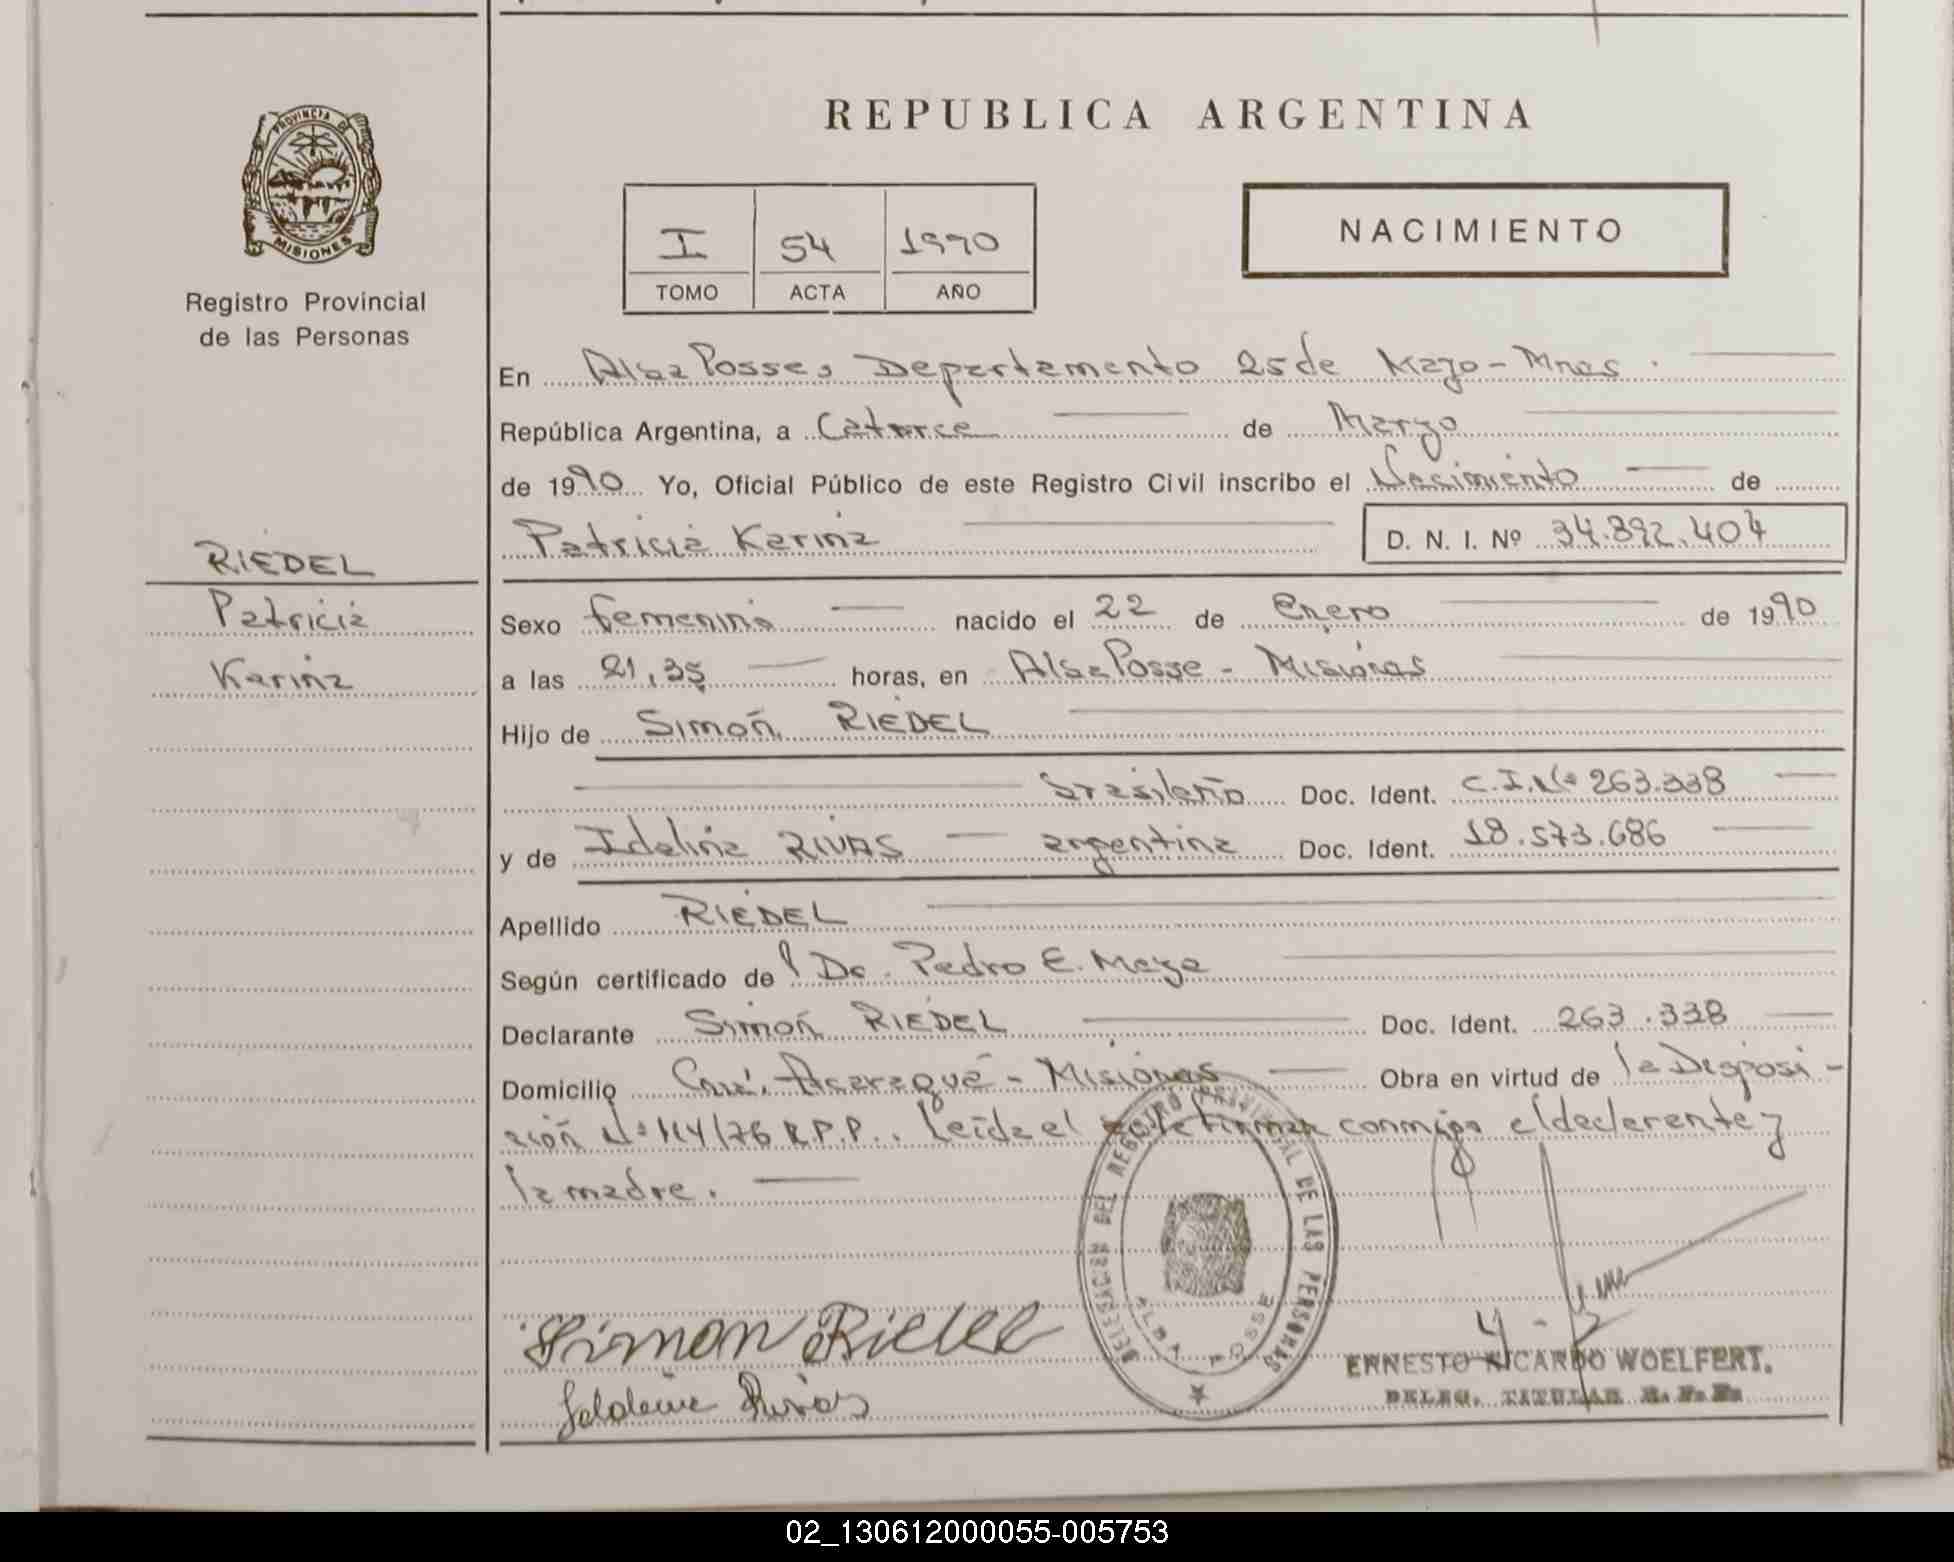 PROVINCIA DE
MISIONES
Registro Provincial
de las Personas
RIEDEL
Patricia
Karina
REPUBLICA ARGENTINA
I 54 1990
TOMO ACTA AÑO
NACIMIENTO
En Alba Posse, Departamento 25 de Mayo - Mnes.
República Argentina, a Catorce de Marzo
de 1990 Yo, Oficial Público de este Registro Civil inscribo el Nacimiento de
Patricia Karina D. N. I. Nº 34.892.404
Sexo femenino nacido el 22 de Enero de 1990
a las 21,35 horas, en Alba Posse - Misiones
Hijo de Simón RIEDEL
brasileño Doc. Ident. C.I.Nº 263.338
y de Idelina RIVAS argentina Doc. Ident. 18.573.686
Apellido RIEDEL
Según certificado del Dr. Pedro E. Maya
Declarante Simón RIEDEL Doc. Ident. 263.338
Domicilio Acaraguá - Misiones Obra en virtud de la Disposi-
ción Nº 114/76 R.P.P.. Leída el acta firman conmigo el declarante y
la madre.
DELEGACION DEL REGISTRO PROVINCIAL DE LAS PERSONAS
ALBA POSSE
Simon Riedel
Rivas
ERNESTO RICARDO WOELFERT.
DELEG. TITULAR R. P. P.
02_130612000055-005753